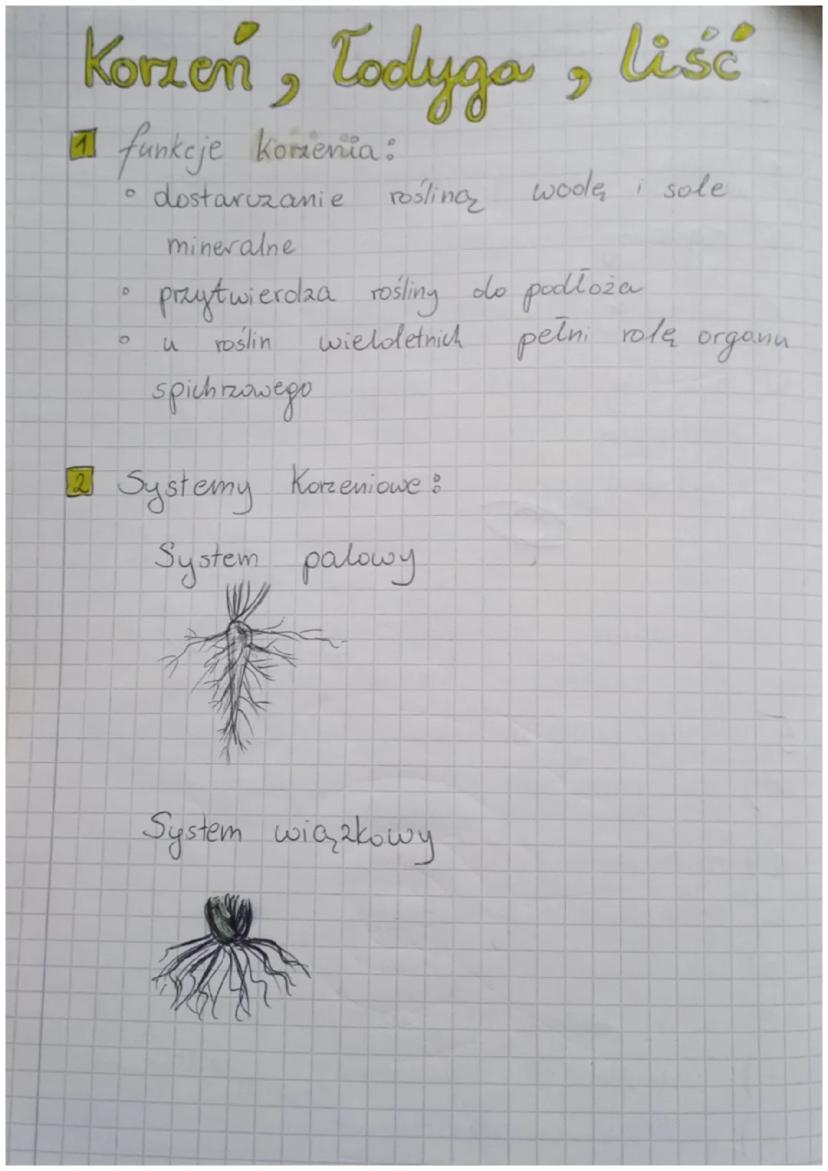 Korzeń, Łodyga, liść
1 funkcje korzenia:
° dostarczanie rośliną wodę i sole
mineralne
° przytwierdza rośliny do podłoża
° u roślin wieloletnich pełni rolę organu
spichrzowego
2 Systemy Korzeniowe:
System palowy
System wiązkowy